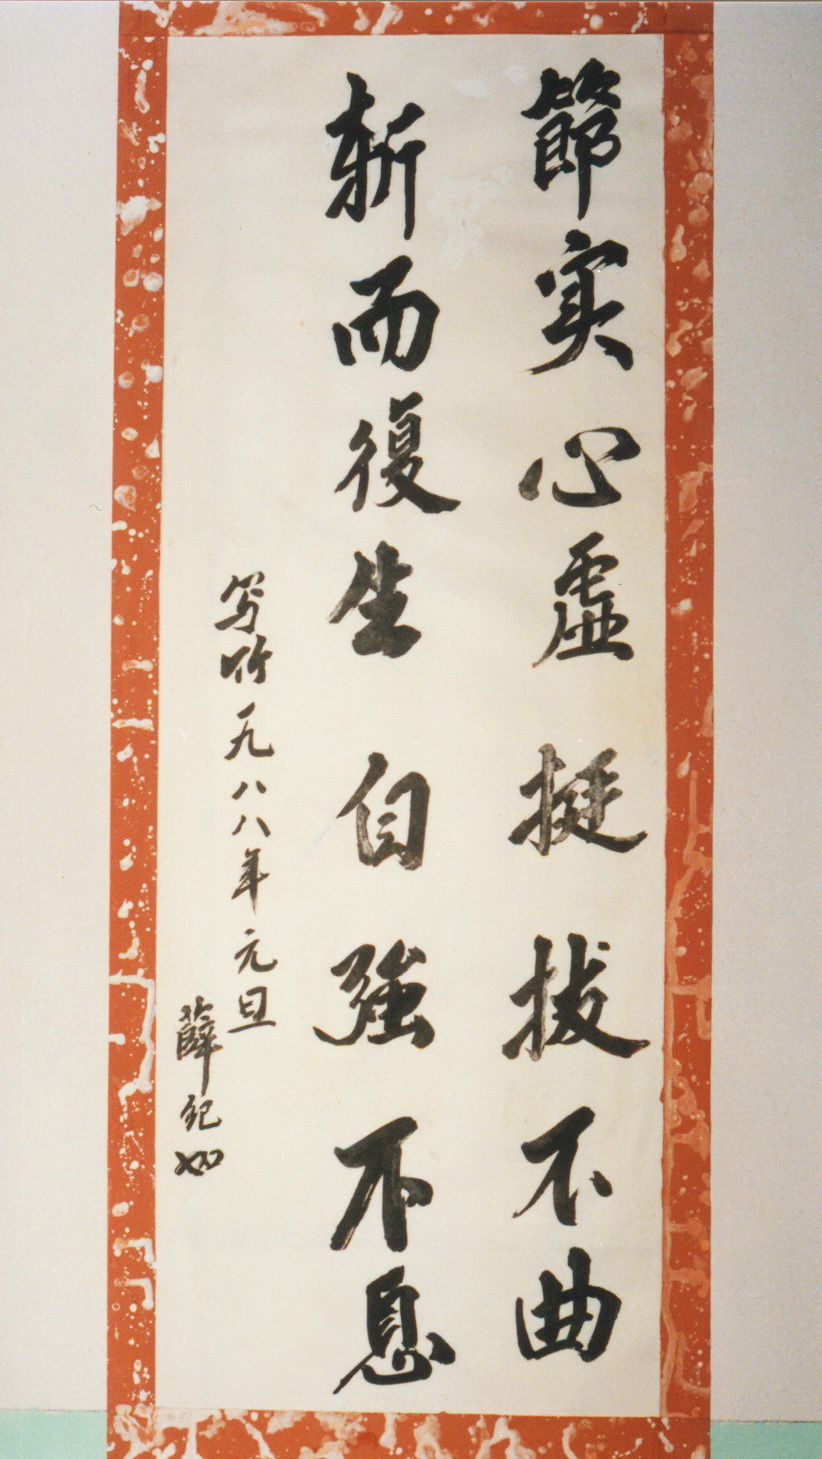 節实心虛挺拔不曲
斬而復生自強不息
写竹一九八八年元旦
薛紀如